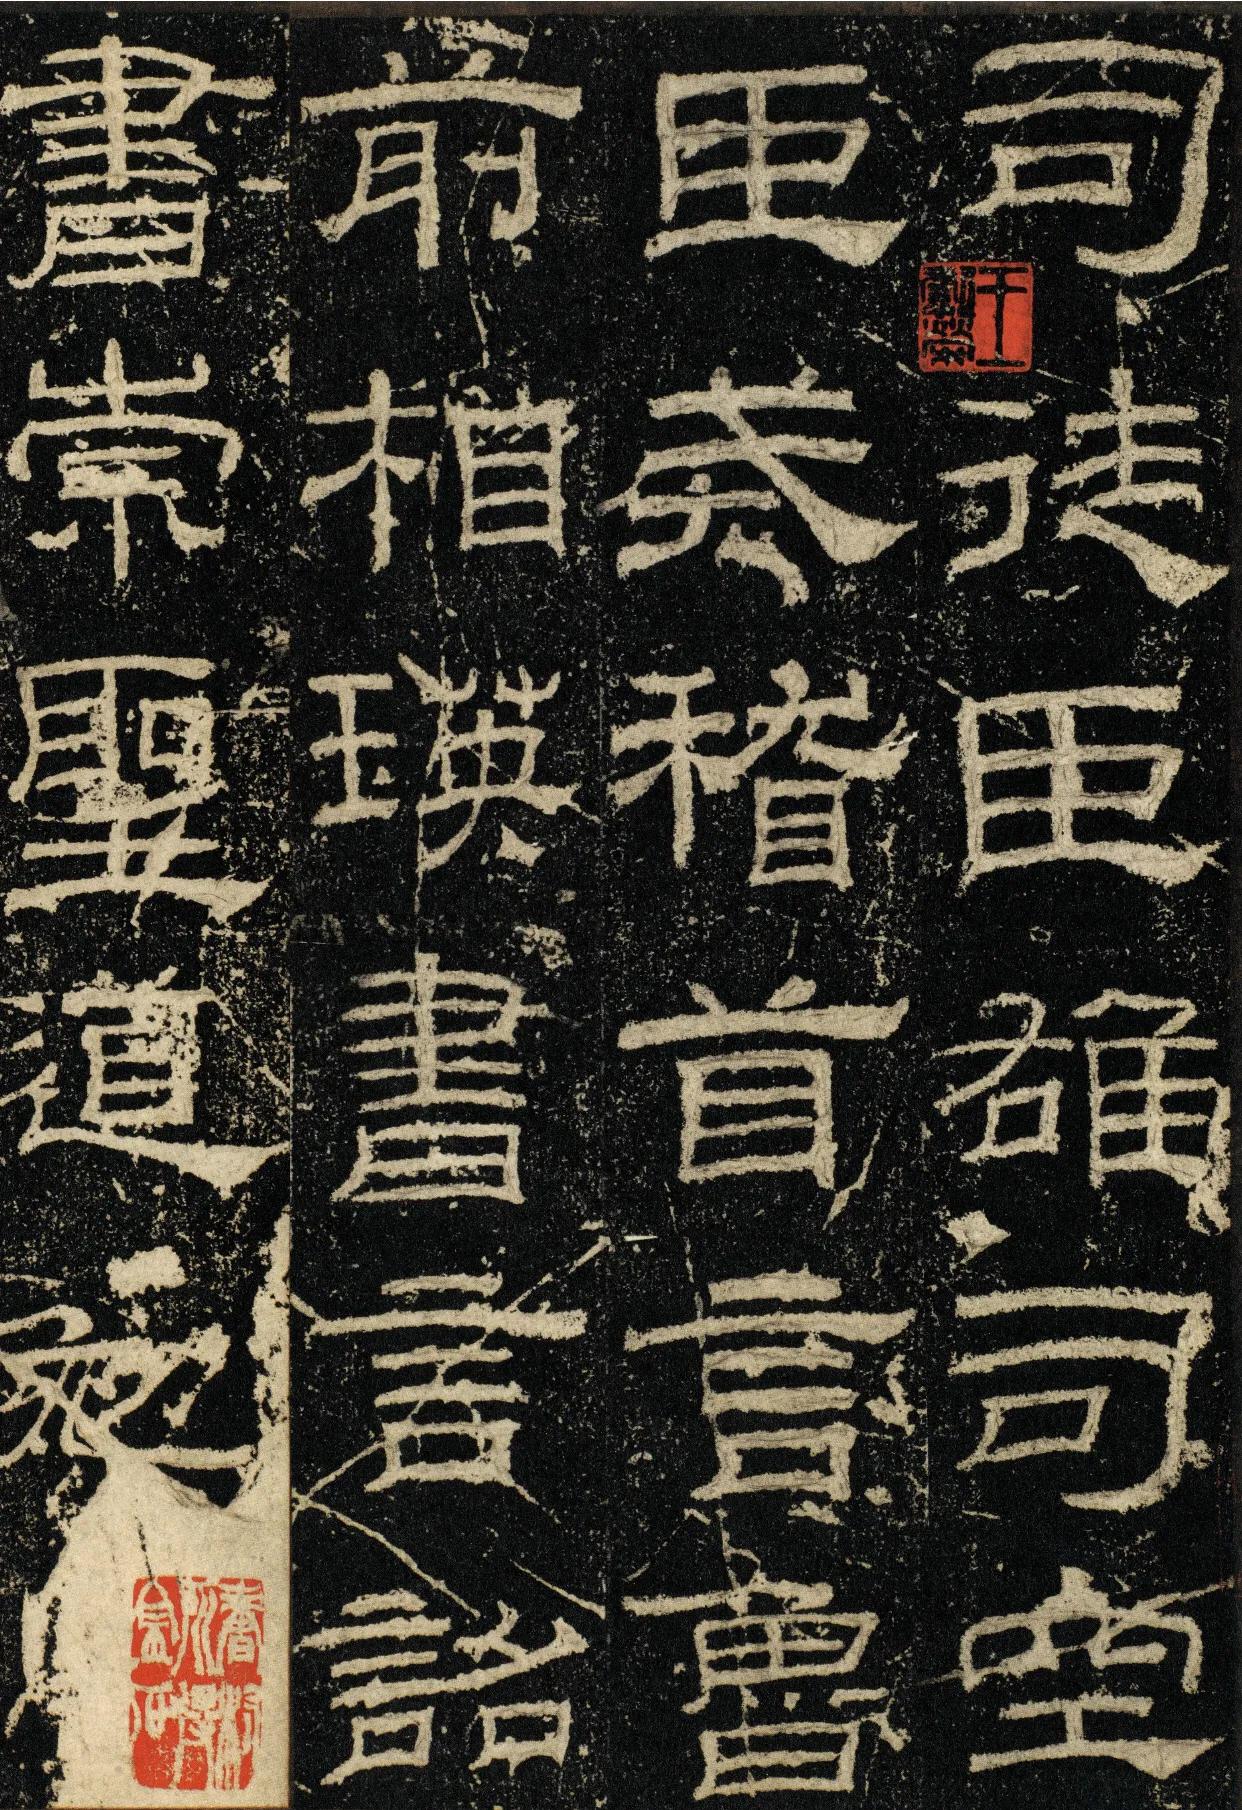 司徒臣雄司空
臣戒稽首言魯
前相瑛書言詔
書崇聖道勉